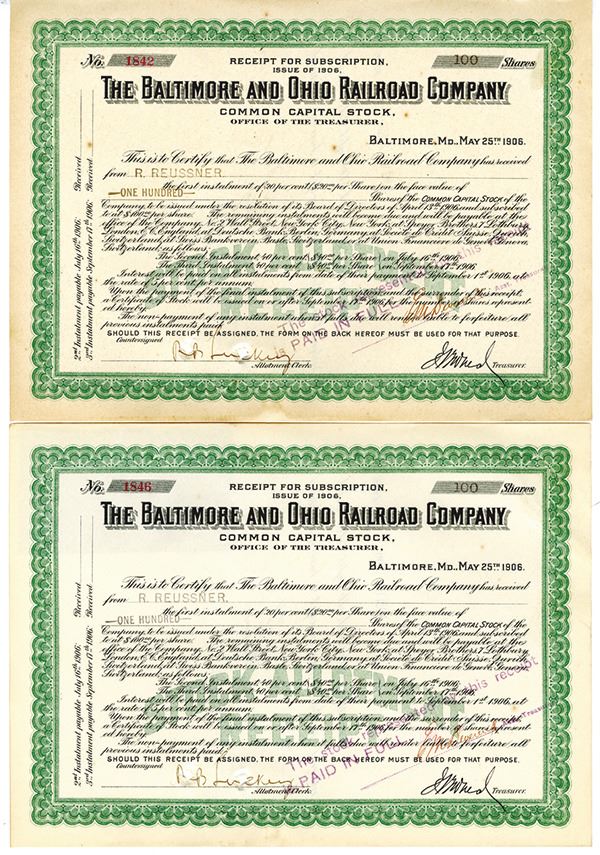 No. 1842
RECEIPT FOR SUBSCRIPTION,
ISSUE OF 1906,
100 Shares
THE BALTIMORE AND OHIO RAILROAD COMPANY
COMMON CAPITAL STOCK,
OFFICE OF THE TREASURER,
BALTIMORE, MD., MAY 25TH 1906.
This is to Certify that The Baltimore and Ohio Railroad Company has received
from R. REUSSNER.
the first instalment of 20 per cent ($20 per Share) on the face value of
ONE HUNDRED
Shares of the COMMON CAPITAL STOCK of the
Company, to be issued under the resolution of its Board of Directors of April 13th 1906 and subscribed
to at $100 per share. The remaining instalments will become due and will be payable at the
office of the Company, No. 2 Wall Street, New York City, New York, at Speyer Brothers 7, Lothbury,
London, E.C. England, at Deutsche Bank, Berlin, Germany, at Société de Crédit Suisse, Zurich,
Switzerland, at Swiss Bankverein, Basle, Switzerland, or at Union Financiere de Genève, Geneva,
Switzerland, as follows:
The Second Instalment 40 per cent, $40 per Share, on July 16th 1906.
The Third Instalment 40 per cent, $40 per Share, on September 17th 1906.
Interest will be paid on all instalments from date of their payment to September 1st 1906, at
the rate of 5 per cent per annum.
Upon the payment of the final instalment of this subscription and the surrender of this receipt,
a Certificate of Stock will be issued on or after September
The non-payment of any instalment when
previous instalments paid.
SHOULD THIS RECEIPT BE ASSIGNED, THE FORM ON THE BACK HEREOF MUST BE USED FOR THAT PURPOSE.
Countersigned
Allotment Clerk.
Treasurer.
2nd Instalment payable July 16th 1906. Received
3rd Instalment payable September 17th 1906. Received
PAID IN FULL
No. 1846
RECEIPT FOR SUBSCRIPTION,
ISSUE OF 1906,
100 Shares
THE BALTIMORE AND OHIO RAILROAD COMPANY
COMMON CAPITAL STOCK,
OFFICE OF THE TREASURER,
BALTIMORE, MD., MAY 25TH 1906.
This is to Certify that The Baltimore and Ohio Railroad Company has received
from R. REUSSNER.
the first instalment of 20 per cent ($20 per Share) on the face value of
ONE HUNDRED
Shares of the COMMON CAPITAL STOCK of the
Company, to be issued under the resolution of its Board of Directors of April 13th 1906 and subscribed
to at $100 per share. The remaining instalments will become due and will be payable at the
office of the Company, No. 2 Wall Street, New York City, New York, at Speyer Brothers 7, Lothbury,
London, E.C. England, at Deutsche Bank, Berlin, Germany, at Société de Crédit Suisse, Zurich,
Switzerland, at Swiss Bankverein, Basle, Switzerland, or at Union Financiere de Genève, Geneva,
Switzerland, as follows:
The Second Instalment 40 per cent, $40 per Share, on July 16th 1906.
The Third Instalment 40 per cent, $40 per Share, on September 17th 1906.
Interest will be paid on all instalments from date of their payment to September 1st 1906, at
the rate of 5 per cent per annum.
Upon the payment of the final instalment of this subscription and the surrender of this receipt
a Certificate of Stock will be issued on or after September
The non-payment of any instalment when
previous instalments paid.
SHOULD THIS RECEIPT BE ASSIGNED, THE FORM ON THE BACK HEREOF MUST BE USED FOR THAT PURPOSE.
Countersigned
Allotment Clerk.
Treasurer.
2nd Instalment payable July 16th 1906. Received
3rd Instalment payable September 17th 1906. Received
The stock represented by this receipt
PAID IN FULL